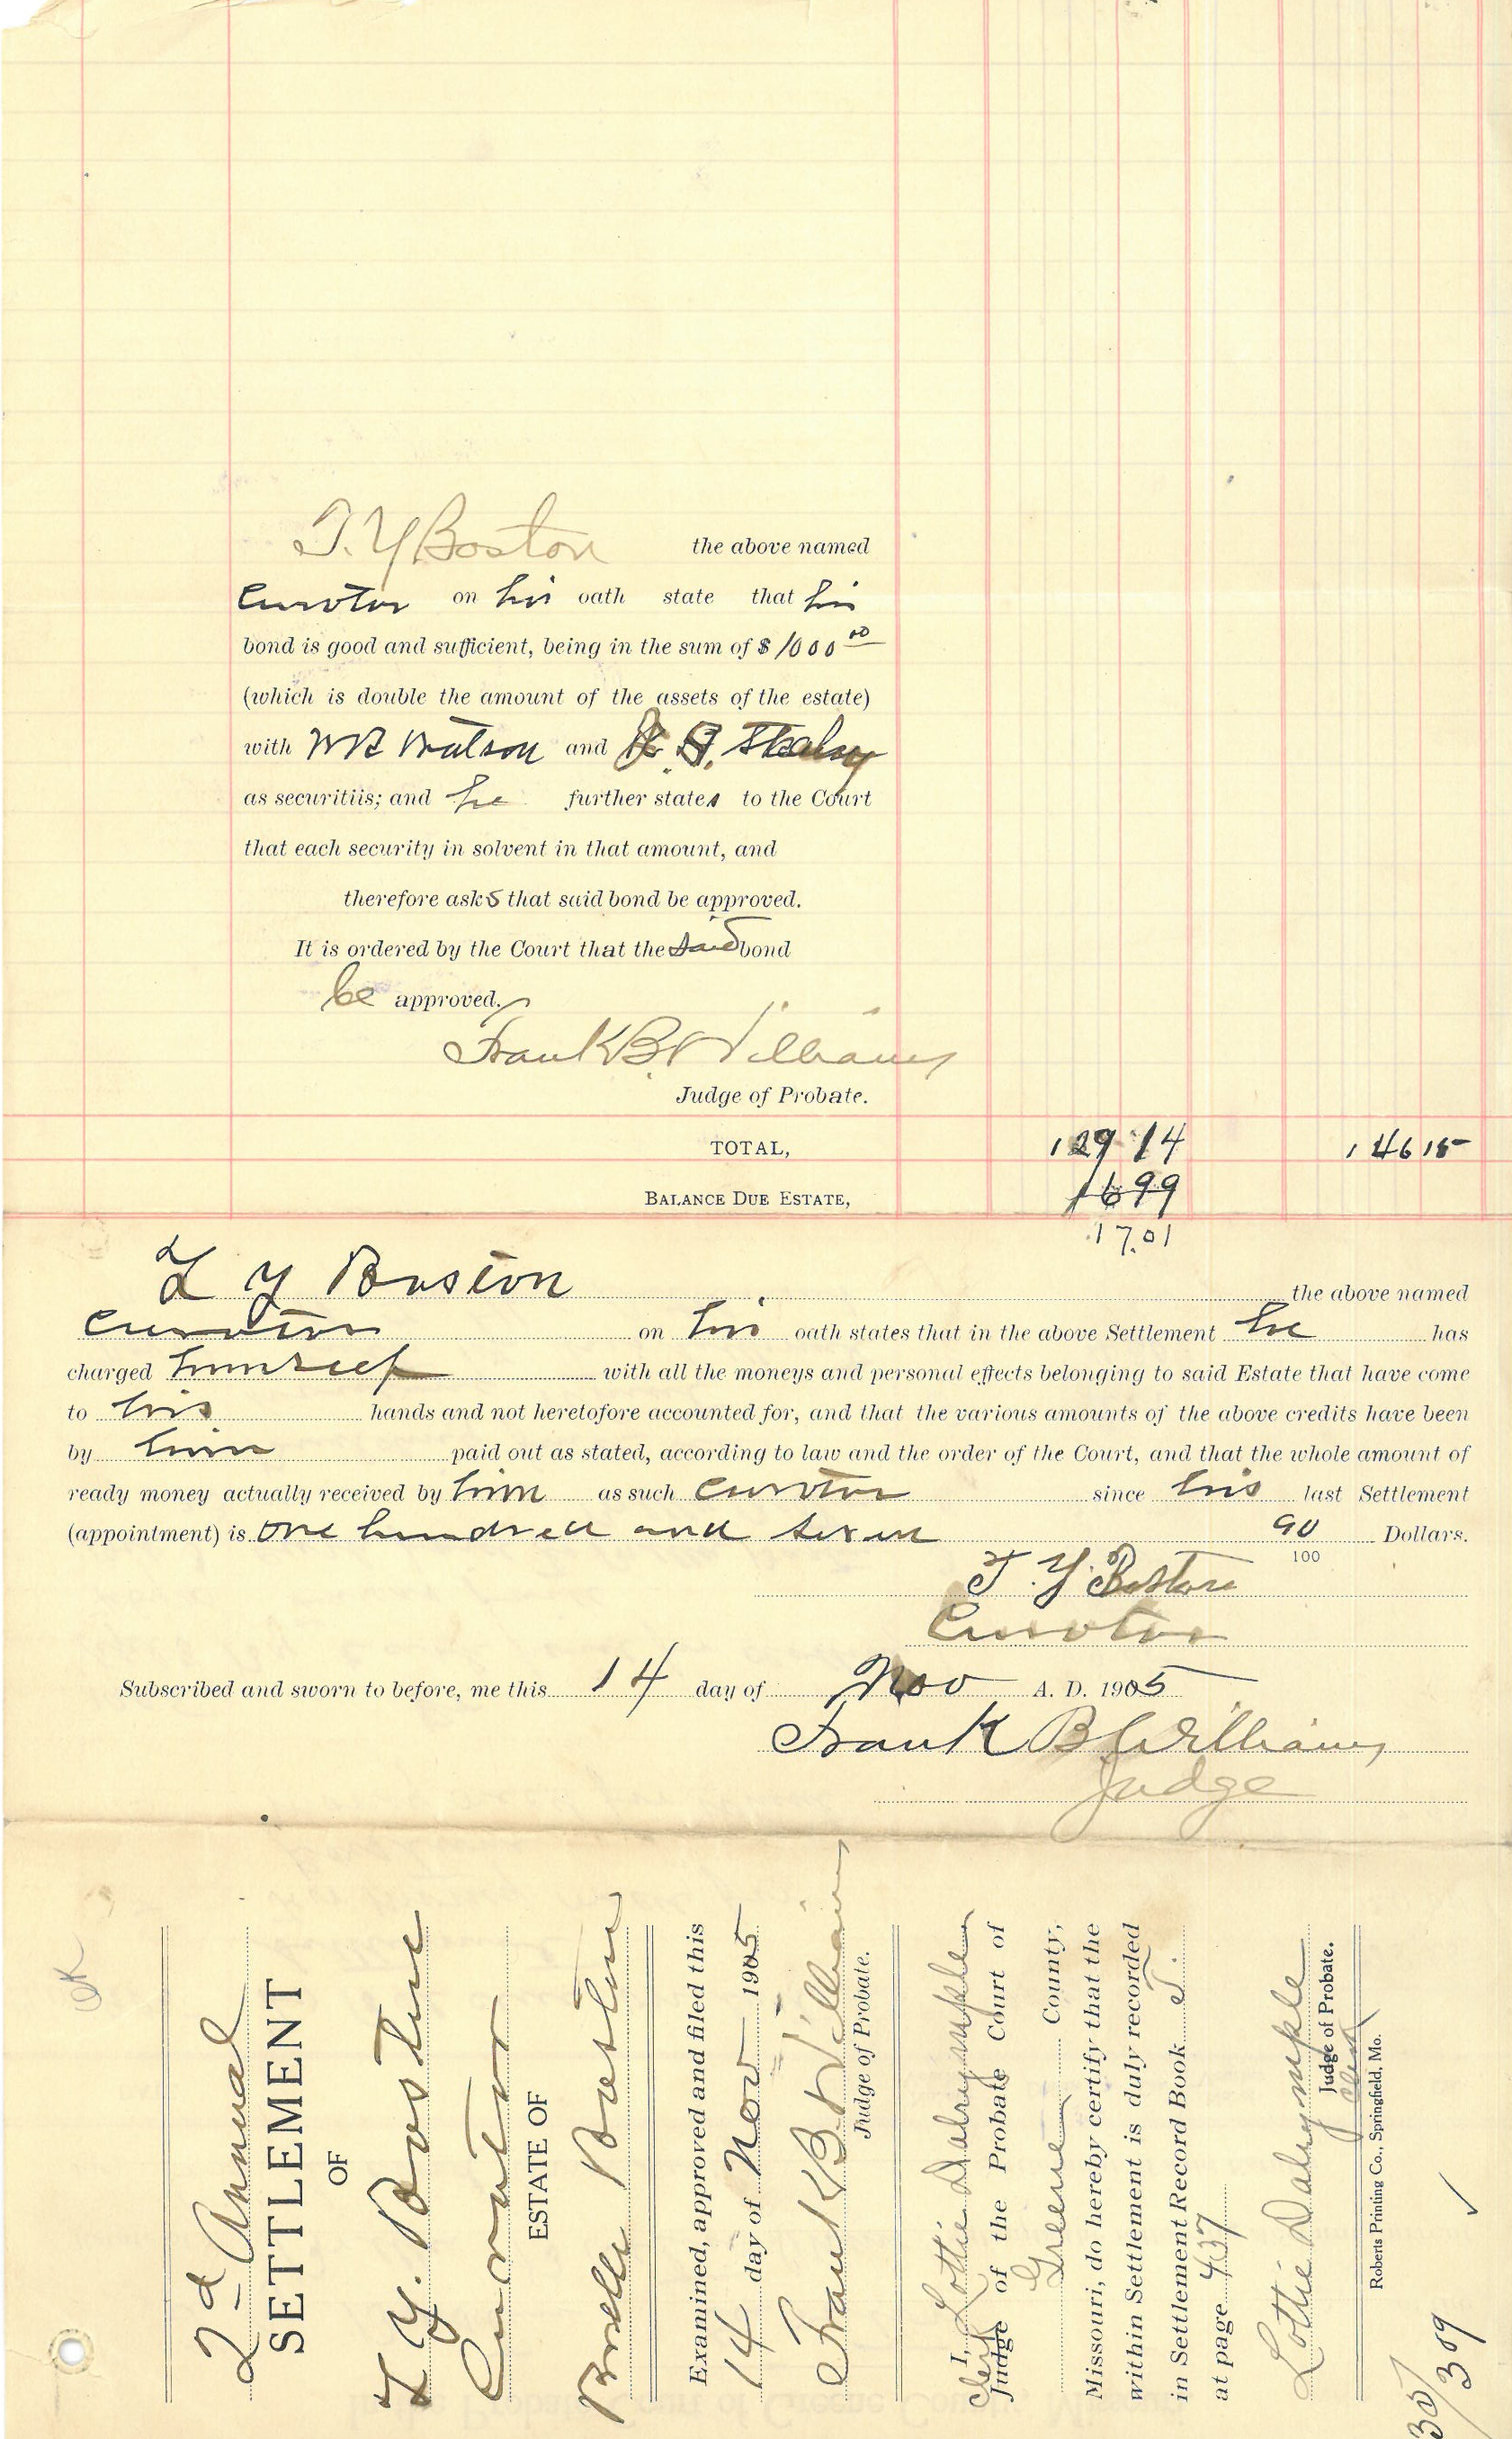 T. Y Boston the above named
Curator on his oath state that his
bond is good and sufficient, being in the sum of $ 1000 00
(which is double the amount of the assets of the estate)
with Watson and
as securitiis; and he further states to the Court
that each security in solvent in that amount, and
therefore asks that said bond be approved.
It is ordered by the Court that the said bond
be approved.
Frank B. Williams
Judge of Probate.
TOTAL, 129 14 146 15
BALANCE DUE ESTATE, 16 99
17.01
T Y Boston the above named
Curator on his oath states that in the above Settlement he has
charged himself with all the moneys and personal effects belonging to said Estate that have come
to his hands and not heretofore accounted for, and that the various amounts of the above credits have been
by him paid out as stated, according to law and the order of the Court, and that the whole amount of
ready money actually received by him as such Curator since his last Settlement
(appointment) is One hundred and seven 90 Dollars.
100
T. Y. Boston
Curator
Subscribed and sworn to before, me this 14 day of Nov A. D. 1905
Frank B Williams
Judge
OK
2d Annual
SETTLEMENT
OF
T Y. Boston
Curator
ESTATE OF
Boston
Examined, approved and filed this
14 day of Nov 1905
Frank B. Williams
Judge of Probate.
I, Lottie Dalrymple
Clerk
Judge of the Probate Court of
Greene County,
Missouri, do hereby certify that the
within Settlement is duly recorded
in Settlement Record Book T.
at page 437
Lottie Dalrymple
Judge of Probate.
Clerk
Roberts Printing Co., Springfield, Mo.
309